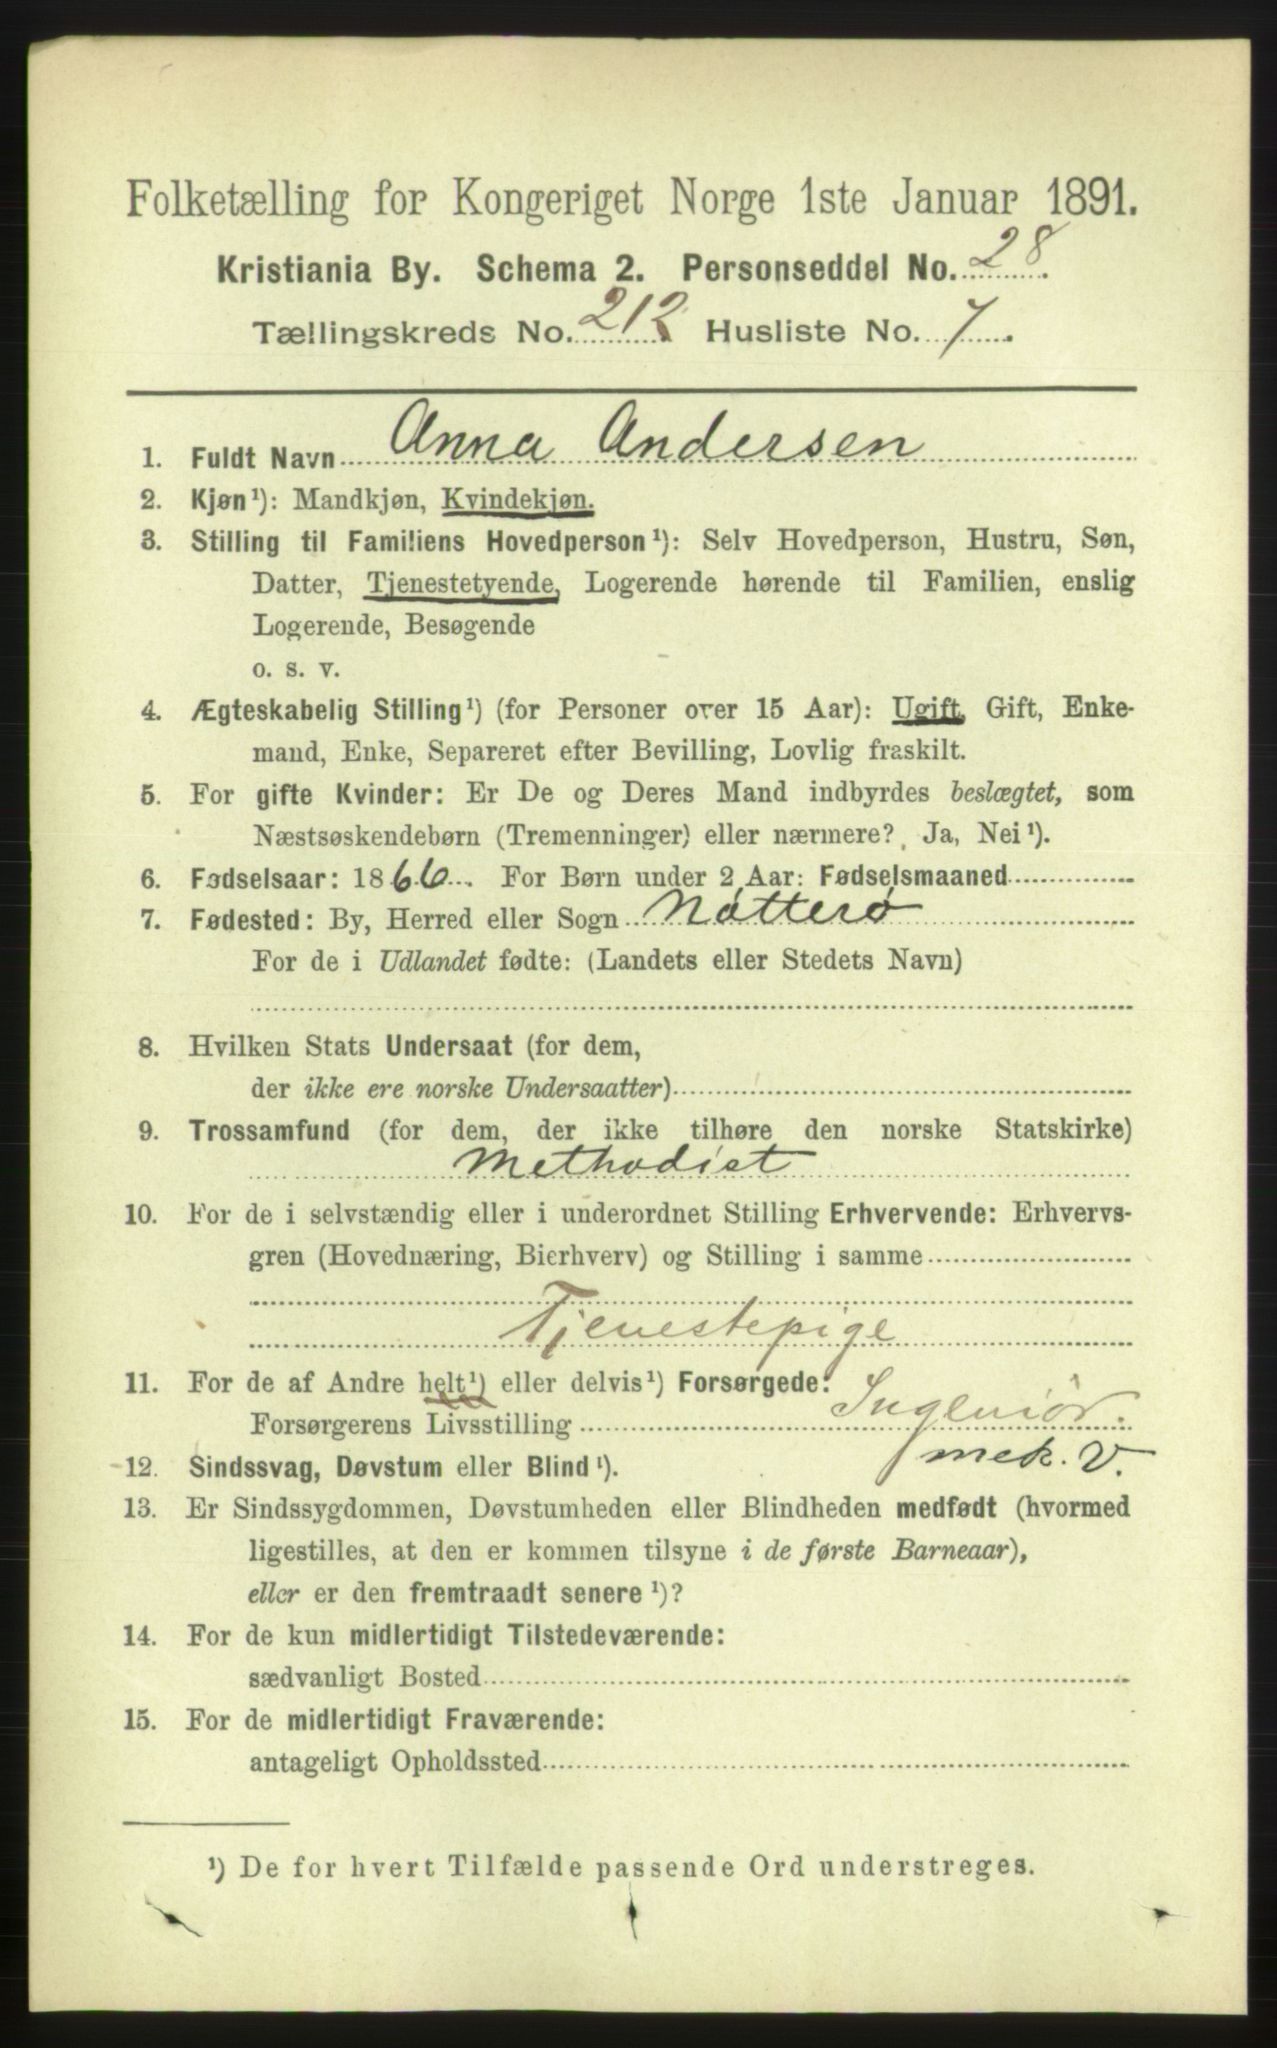 Folketælling for Kongeriget Norge 1ste Januar 1891.
Kristiania By. Schema 2. Personseddel No. 28.
Tællingskreds No. 212 Husliste No. 7.
1. Fuldt Navn Anna Andersen
2. Kjøn¹): Mandkjøn, Kvindekjøn.
3. Stilling til Familiens Hovedperson¹): Selv Hovedperson, Hustru, Søn,
Datter, Tjenestetyende, Logerende hørende til Familien, enslig
Logerende, Besøgende
o. s. v.
4. Ægteskabelig Stilling¹) (for Personer over 15 Aar): Ugift, Gift, Enke-
mand, Enke, Separeret efter Bevilling, Lovlig fraskilt.
5. For gifte Kvinder: Er De og Deres Mand indbyrdes beslægtet, som
Næstsøskendebørn (Tremenninger) eller nærmere? Ja, Nei¹).
6. Fødselsaar: 1866. For Børn under 2 Aar: Fødselsmaaned
7. Fødested: By, Herred eller Sogn Nøtterø
For de i Udlandet fødte: (Landets eller Stedets Navn)
8. Hvilken Stats Undersaat (for dem,
der ikke ere norske Undersaatter)
9. Trossamfund (for dem, der ikke tilhøre den norske Statskirke)
Methodist
10. For de i selvstændig eller i underordnet Stilling Erhvervende: Erhvervs-
gren (Hovednæring, Bierhverv) og Stilling i samme
Tjenestepige
11. For de af Andre helt¹) eller delvis¹) Forsørgede:
Forsørgerens Livsstilling Ingeniör.
mek. V.
12. Sindssvag, Døvstum eller Blind¹).
13. Er Sindssygdommen, Døvstumheden eller Blindheden medfødt (hvormed
ligestilles, at den er kommen tilsyne i de første Barneaar),
eller er den fremtraadt senere¹)?
14. For de kun midlertidigt Tilstedeværende:
sædvanligt Bosted
15. For de midlertidigt Fraværende:
antageligt Opholdssted
¹) De for hvert Tilfælde passende Ord understreges.